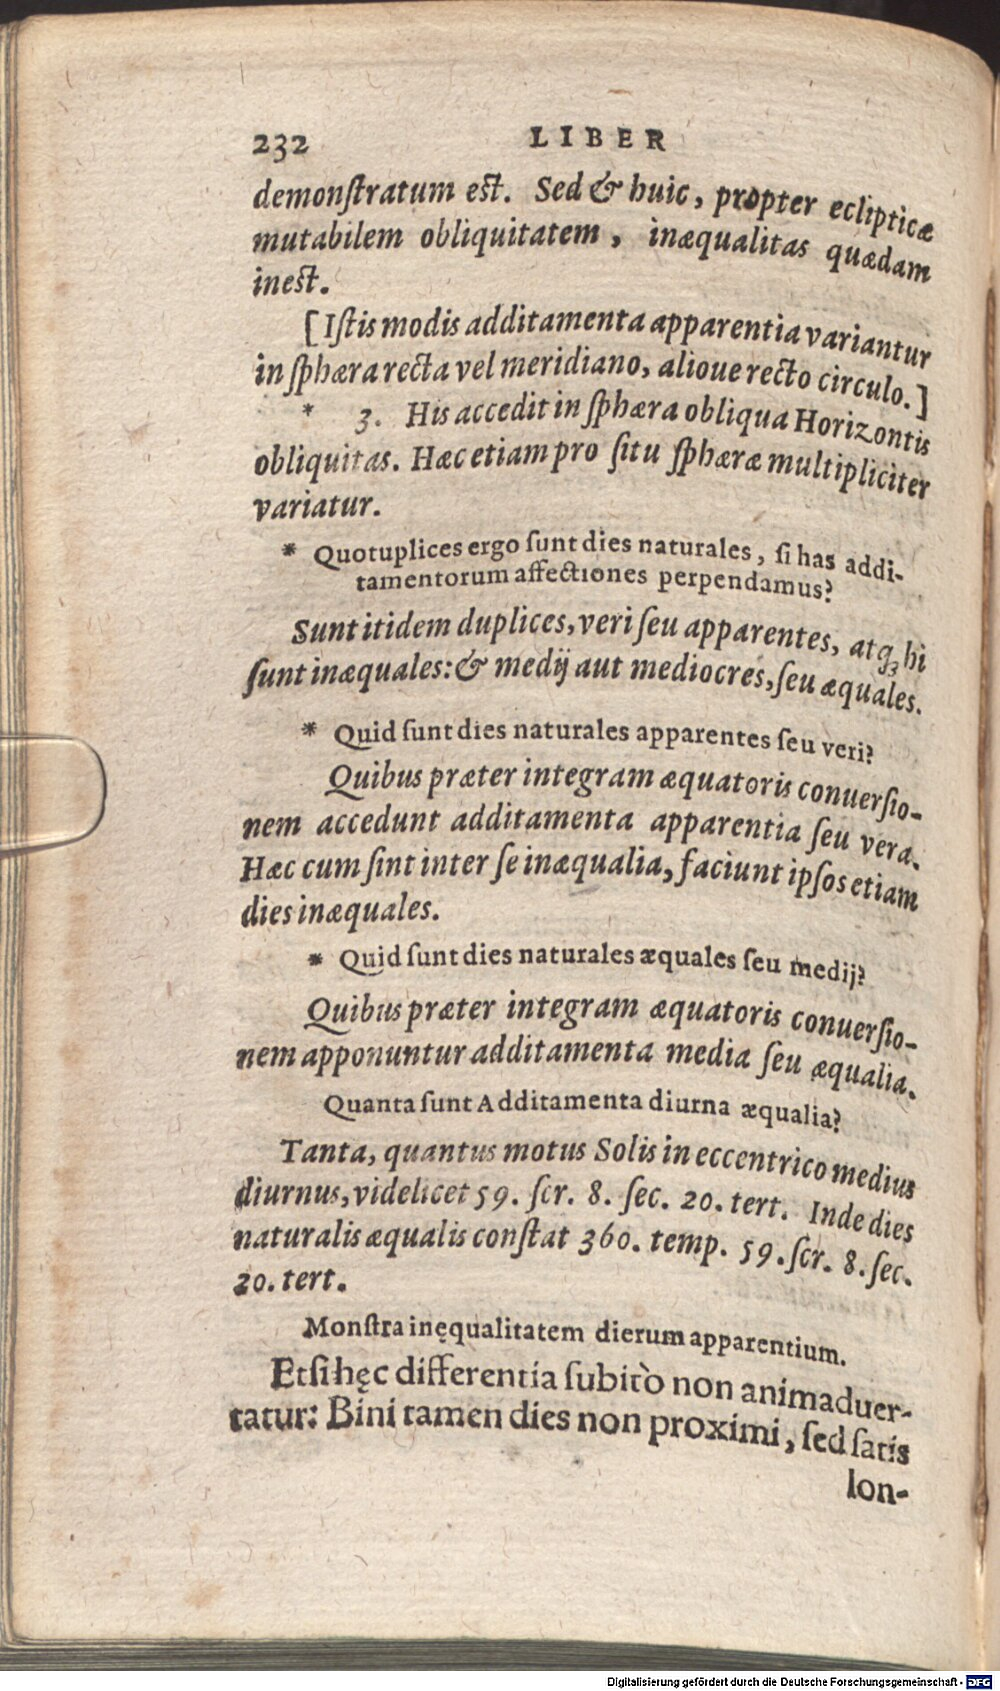 232 LIBER
demonſtratum eſt. Sed & huic, propter eclipticæ
mutabilem obliquitatem, inæqualitas quædam
ineſt.
[Iſtis modis additamenta apparentia variantur
in ſphæra recta vel meridiano, alioue recto circulo.]
* 3. His accedit in ſphæra obliqua Horizontis
obliquitas. Hæc etiam pro ſitu ſphæræ multipliciter
variatur.
* Quotuplices ergo ſunt dies naturales, ſi has addi-
tamentorum affectiones perpendamus?
Sunt itidem duplices, veri ſeu apparentes, atq́ꝫ hi
ſunt inæquales: & medij aut mediocres, ſeu æquales.
* Quid ſunt dies naturales apparentes ſeu veri?
Quibus præter integram æquatoris conuerſio-
nem accedunt additamenta apparentia ſeu vera.
Hæc cum ſint inter ſe inæqualia, faciunt ipſos etiam
dies inæquales.
* Quid ſunt dies naturales æquales ſeu medij?
Quibus præter integram æquatoris conuerſio-
nem apponuntur additamenta media ſeu æqualia.
Quanta ſunt Additamenta diurna æqualia?
Tanta, quantus motus Solis in eccentrico medius
diurnus, videlicet 59. ſcr. 8. ſec. 20. tert. Inde dies
naturalis æqualis conſtat 360. temp. 59. ſcr. 8. ſec.
20. tert.
Monſtra inęqualitatem dierum apparentium.
Etſi hęc differentia ſubitò non animaduer-
tatur: Bini tamen dies non proximi, ſed ſatis
lon-
Digitalisierung gefördert durch die Deutsche Forschungsgemeinschaft - DFG